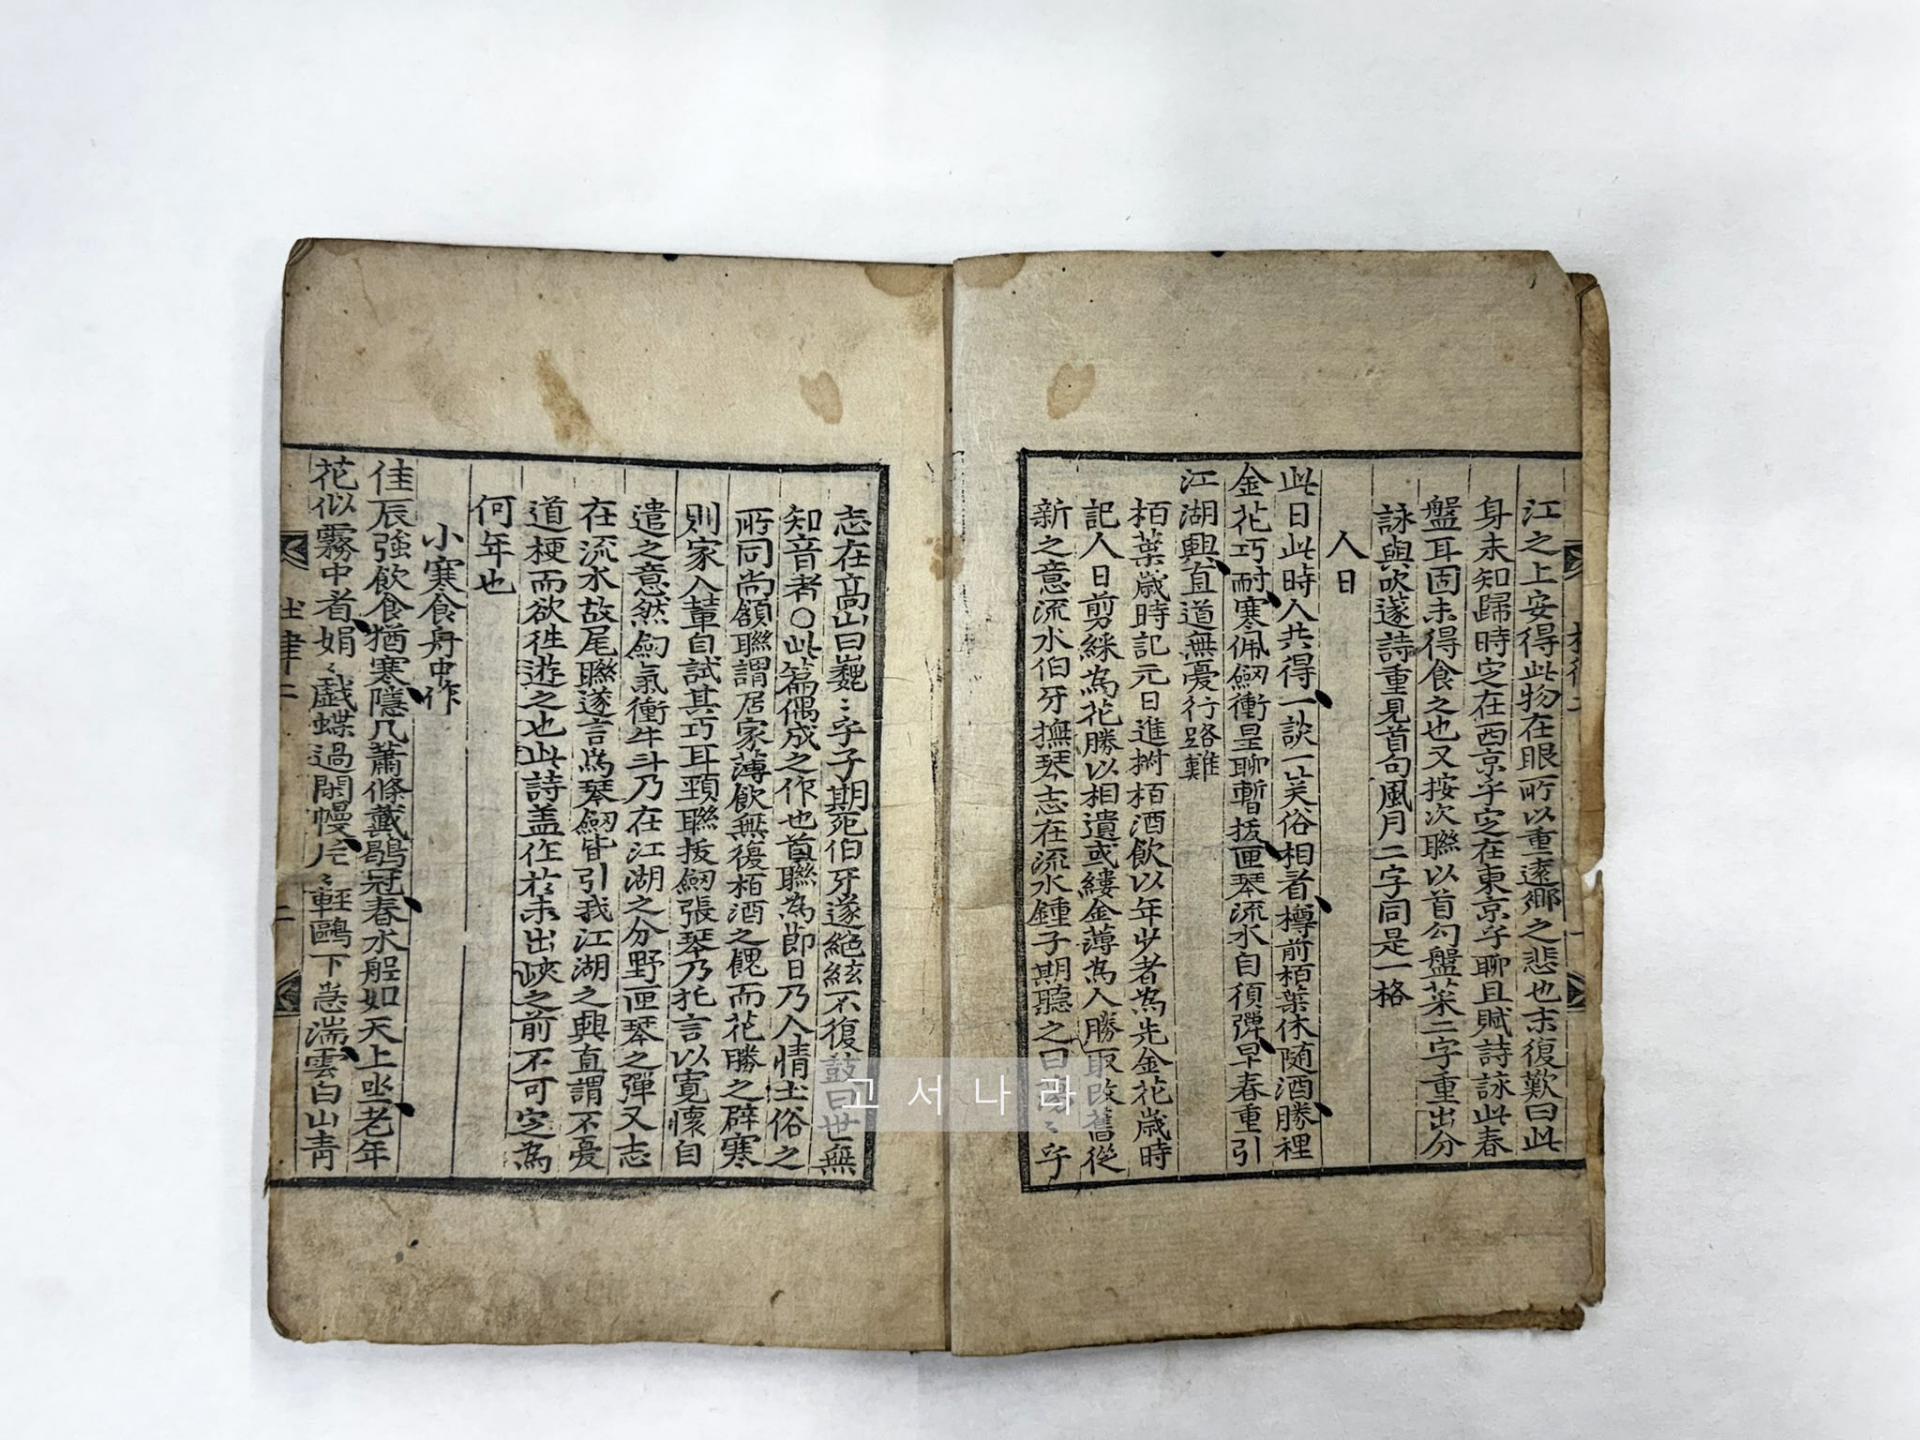 江之上安得此物在眼所以重遠鄉之悲也末復歎曰此
身未知歸時定在西京乎定在東京乎聊且賦詩詠此春
盤耳固未得食之也又按次聯以首句盤菜二字重出分
詠與吹篴詩重見首句風月二字同是一格
人日
此日此時人共得一談一笑俗相看樽前栢葉休随酒勝裡
金花巧耐寒佩劒衝星聊暫拔匣琴流水自須彈早春重引
江湖興直道無憂行路難
栢葉歲時記元日進椒栢酒飲以年少者為先金花歲時
記人日剪綵為花勝以相遺或縷金薄為人勝取改舊從
新之意流水伯牙撫琴志在流水鍾子期聽之曰 乎
志在高山曰巍〻乎子期死伯牙遂絶絃不復鼓曰世無
知音者○此篇偶成之作也首聯為節日乃人情土俗之
所同尚頷聯謂居家薄飲無復栢酒之餽而花勝之辟寒
則家人輩自試其巧耳頸聯拔劒張琴乃托言以寛懷自
遣之意然劒氣衝牛斗乃在江湖之分野匣琴之彈又志
在流水故尾聯遂言為琴劒皆引我江湖之興直謂不憂
道梗而欲徃遊之也此詩盖作於未出峽之前不可定為
何年也
小寒食舟中作
佳辰強飲食猶寒隱几蕭條戴鶡冠春水船如天上坐老年
花似霧中看娟〻戱蝶過閑幔片〻輕鷗下急湍雲白山青
杜律二
二
고서나라